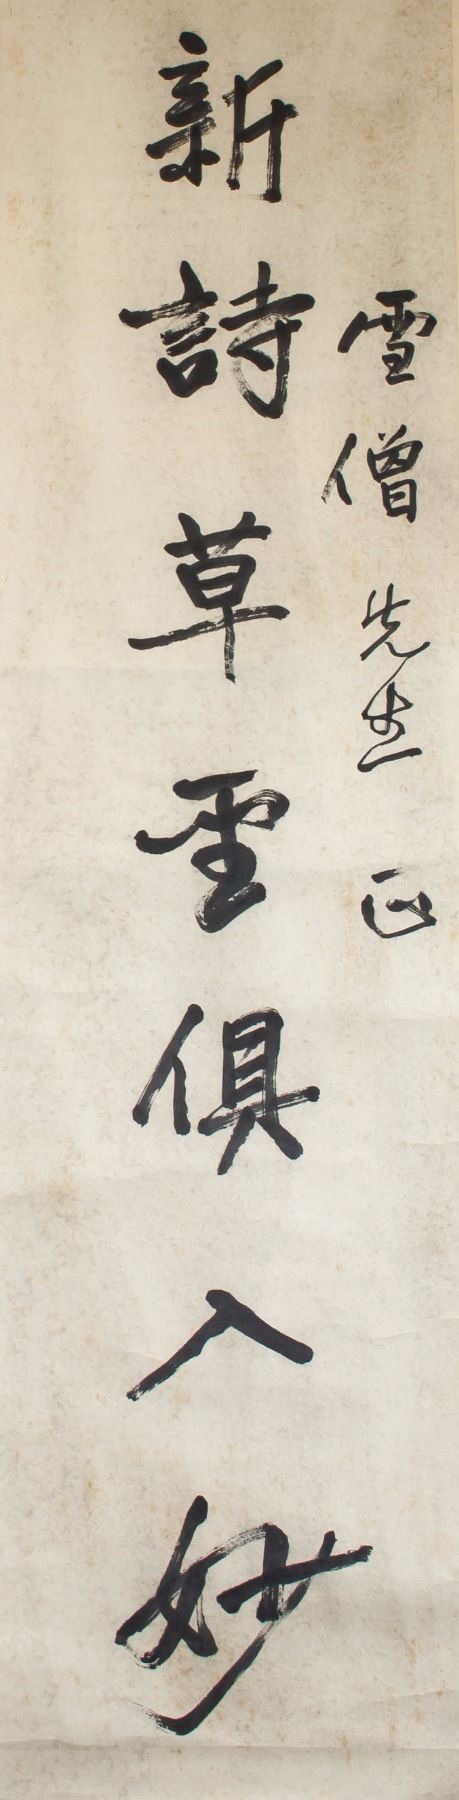 雪僧先生正
新詩草聖俱入妙